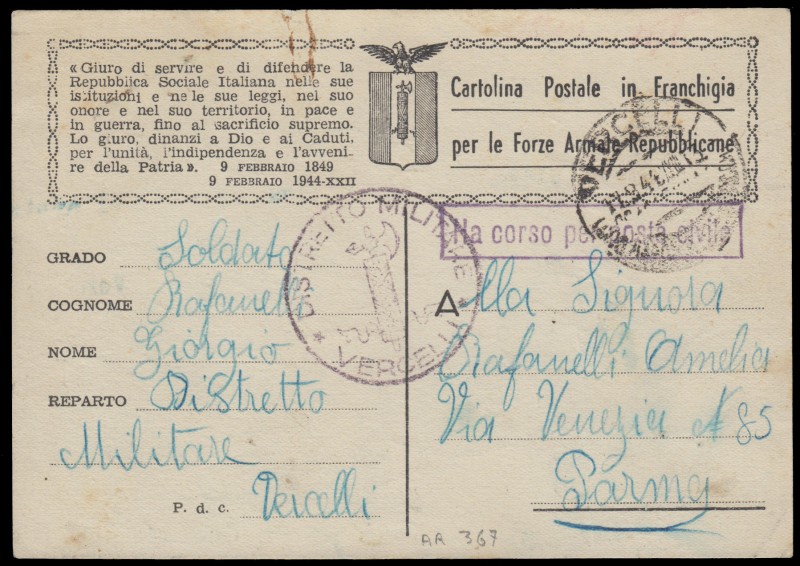 « Giuro di servire e di difendere la
Repubblica Sociale Italiana nelle sue
istituzioni e nelle sue leggi, nel suo
onore e nel suo territorio, in pace e
in guerra, fino al sacrificio supremo.
Lo giuro, dinanzi a Dio e ai Caduti,
per l'unità, l'indipendenza e l'avveni-
re della Patria ». 9 FEBBRAIO 1849
9 FEBBRAIO 1944-XXII
Cartolina Postale in Franchigia
per le Forze Armate Repubblicane
VERCELLI
Ha corso per posta civile
DISTRETTO MILITARE
* VERCELLI *
GRADO Soldato
COGNOME Rafanelli
NOME Giorgio
REPARTO Distretto
Militare
P. d. c. Vercelli
Alla Signora
Rafanelli Amelia
Via Venezia N 85
Parma
AR 367